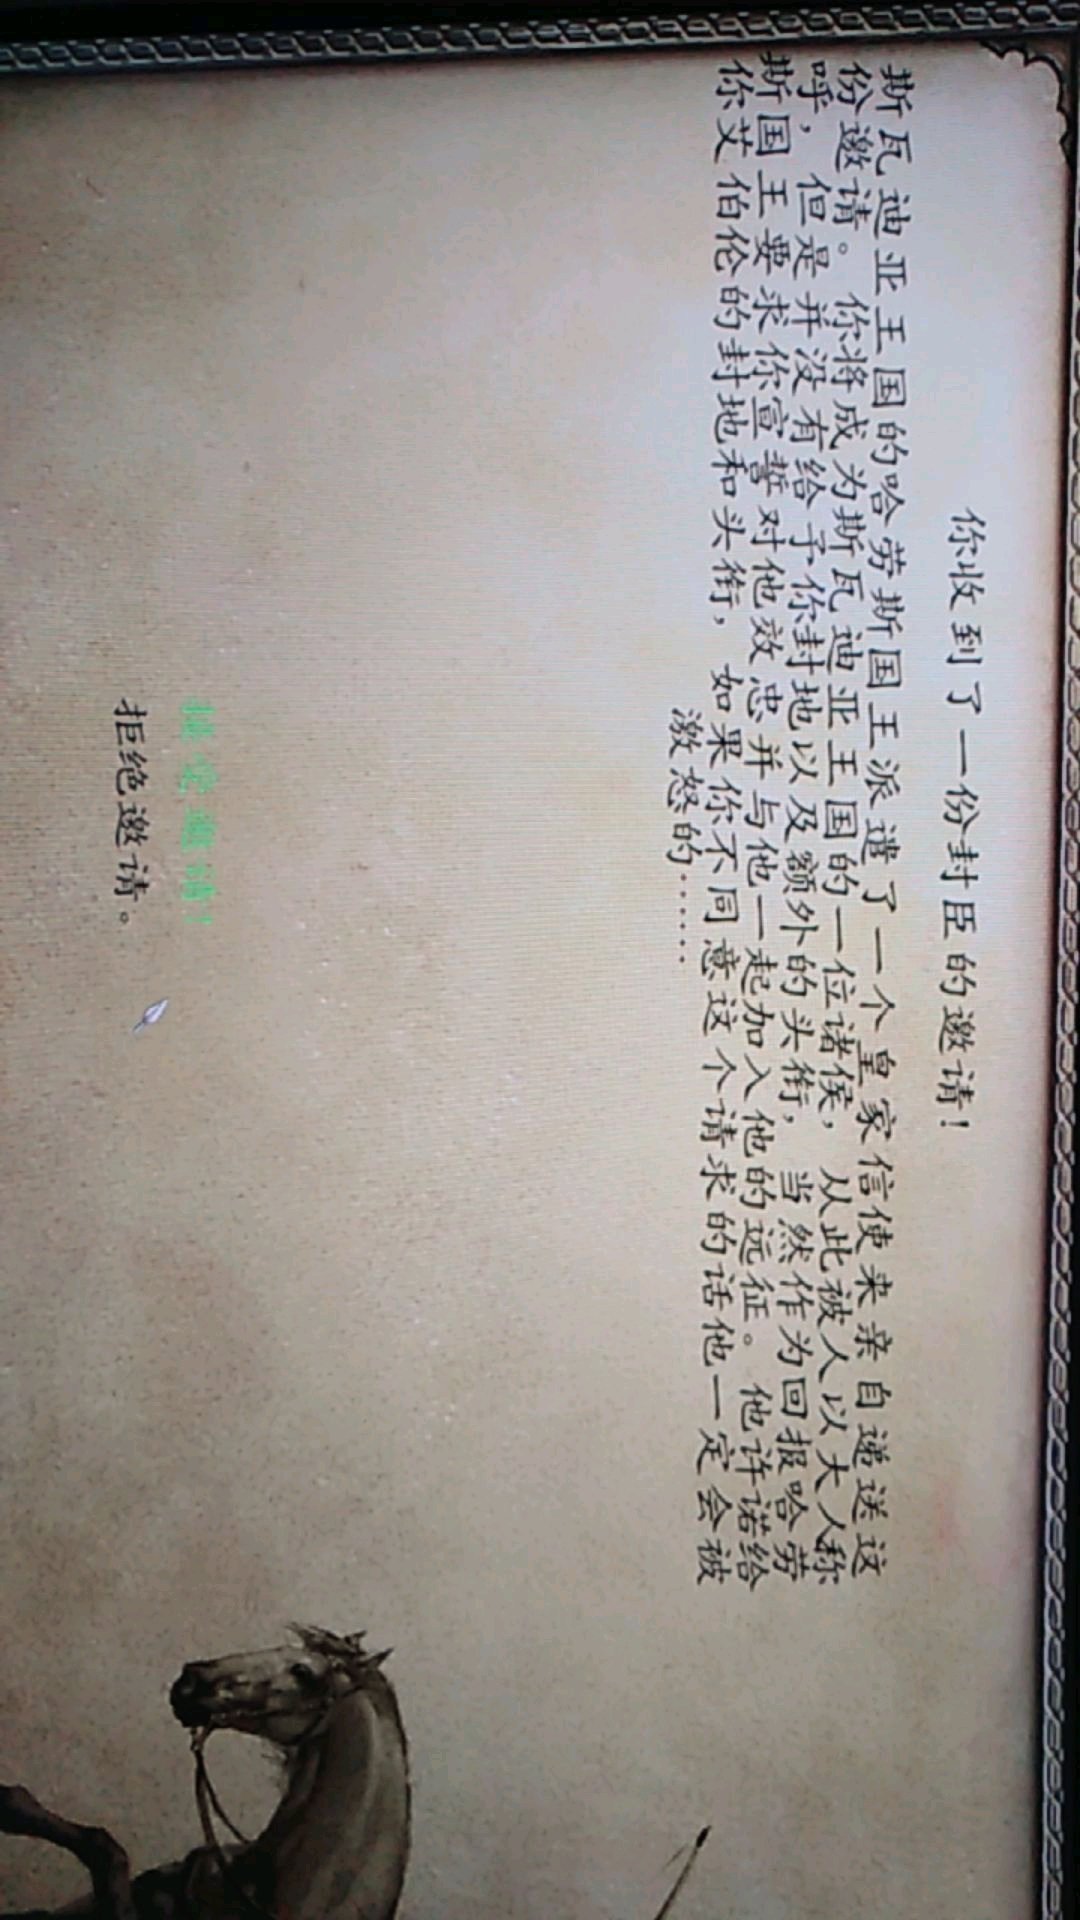 你收到了一份封臣的邀请！
斯瓦迪亚王国的哈劳斯国王派遣了一个皇家信使来亲自递送这
份邀请。你将成为斯瓦迪亚王国的一位诸侯，从此被人以大人称
呼，但是并没有给予你封地以及额外的头衔，当然作为回报哈劳
斯国王要求你宣誓对他效忠并与他一起加入他的远征。他许诺给
你艾伯伦的封地和头衔，如果你不同意这个请求的话他一定会被
激怒的……
接受邀请！
拒绝邀请。